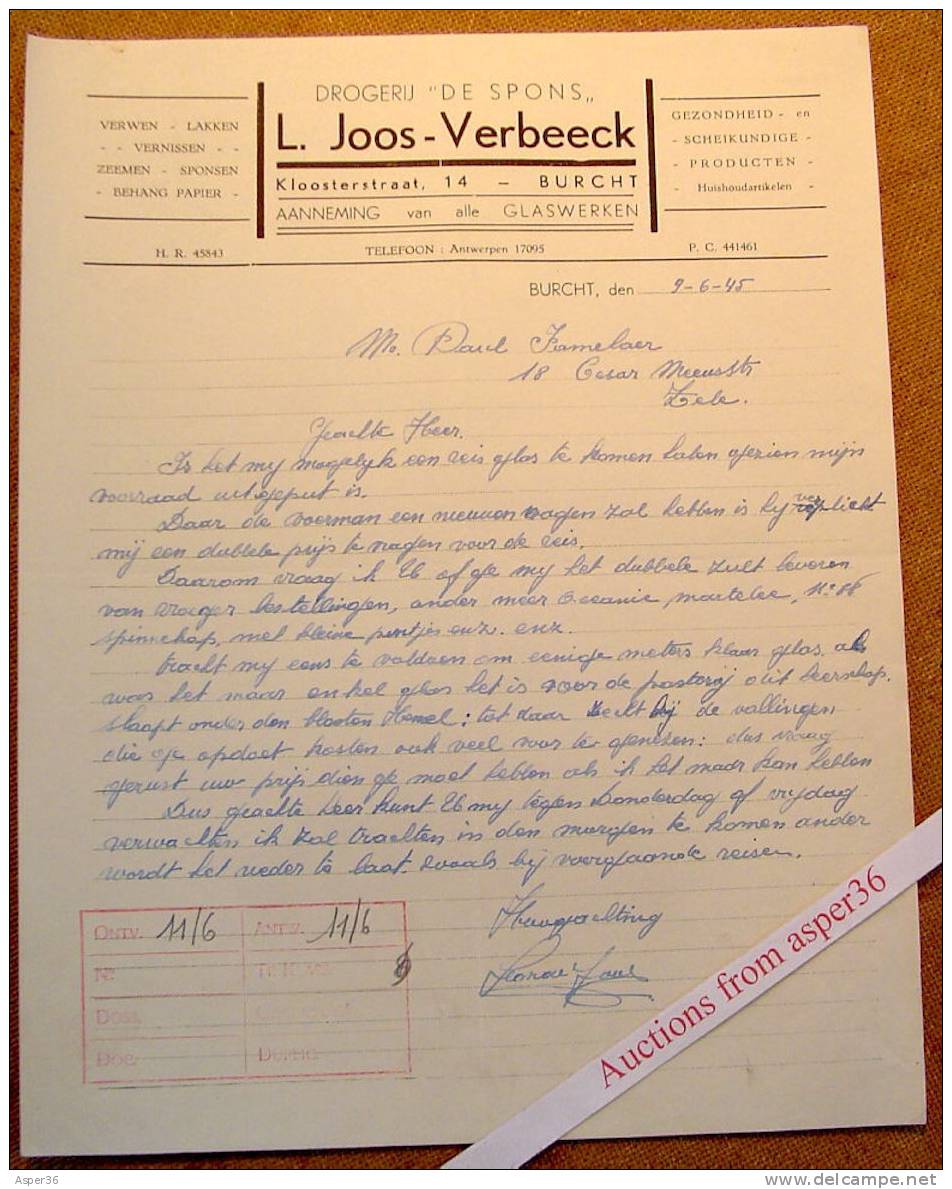 DROGERIJ "DE SPONS„
L. Joos - Verbeeck
Kloosterstraat, 14 – BURCHT
AANNEMING van alle GLASWERKEN
VERWEN - LAKKEN
- - VERNISSEN - -
ZEEMEN - SPONSEN
- BEHANG PAPIER -
GEZONDHEID - en
- SCHEIKUNDIGE -
- PRODUCTEN -
- Huishoudartikelen -
H. R. 45843
TELEFOON : Antwerpen 17095
P. C. 441461
BURCHT, den 9-6-45
Mr. Paul Famelaer
18 Cesar Meeusstr
Zele.
Geachte Heer.
Is het my mogelyk een reis glas te komen halen gezien mijn
voorraad uitgeput is.
Daar de voerman een nieuwen wagen zal hebben is hy verplicht
mij een dubbele prijs te vragen voor de reis.
Daarom vraag ik U of ge my het dubbele zult leveren
van vroeger bestellingen, onder meer Oceanic martelee, N: 88
spinnekop, met kleine puntjes enz. enz.
tracht my eens te voldoen om eenige meters klaar glas, al
was het maar enkel glas het is voor de pastorij dit heerschap.
slaapt onder den blooten Hemel; tot daar de vallingen
die ge opdoet kosten ook veel voor te genesen: dus vraag
gerust uw prijs dien ge moet hebben als ik het maar kan hebben
Dus geachte heer kunt U my tegen Donderdag of vrijdag
verwachten ik zal trachten in den morgen te komen ander
wordt het weder te laat. zooals bij voorgaande reisen.
Hoogachting
ONTV. 11/6 ANTW. 11/6
Nr
DOSS.
DOC.
Auctions from asper36
Asper36
www.delcampe.net